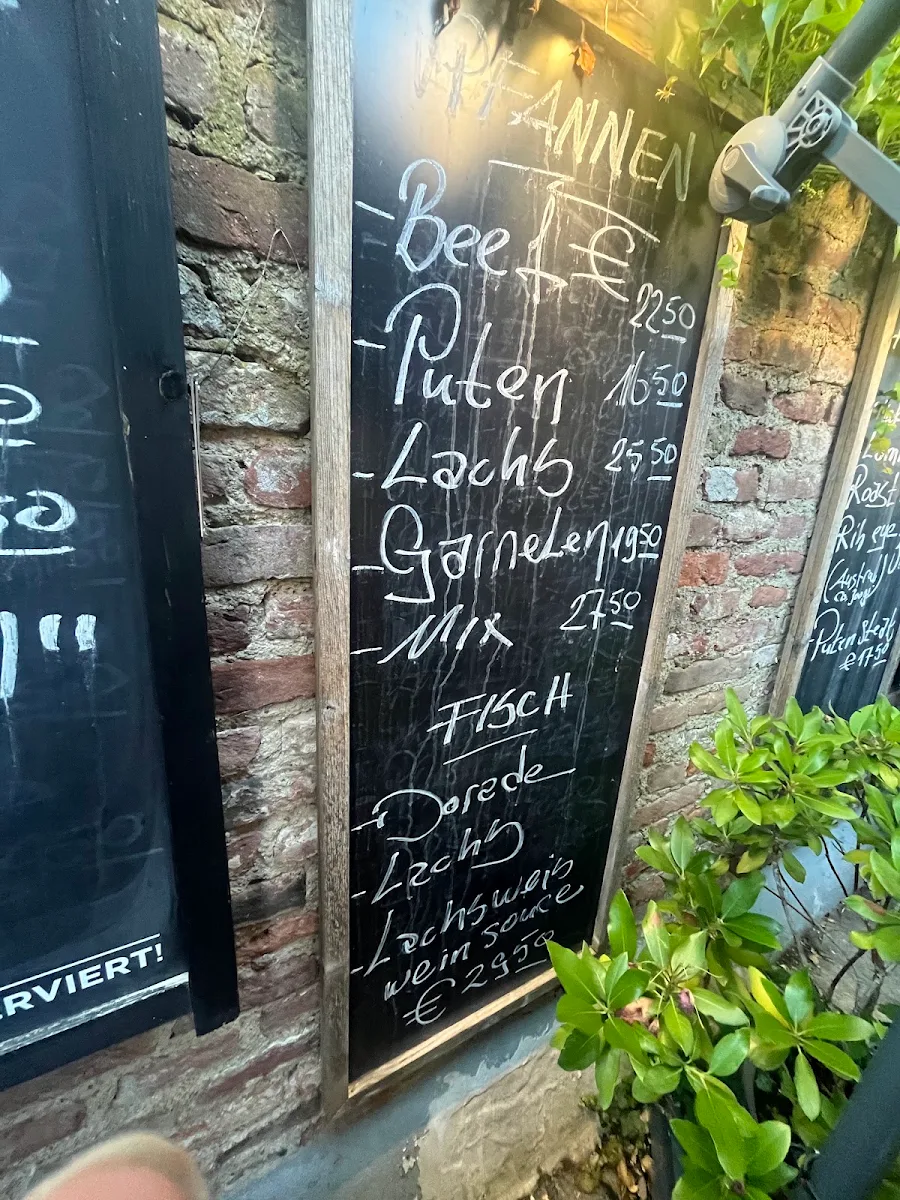 PFANNEN
- Beef €
2250
- Puten 1650
- Lachs 2550
- Garnelen 1950
- Mix 2750
FISCH
- Dorade
- Lachs
- Lachsweis
wein souce
€ 2950
ERVIERT!
50
Roast
Rib eye
Puten Steak
€ 1750